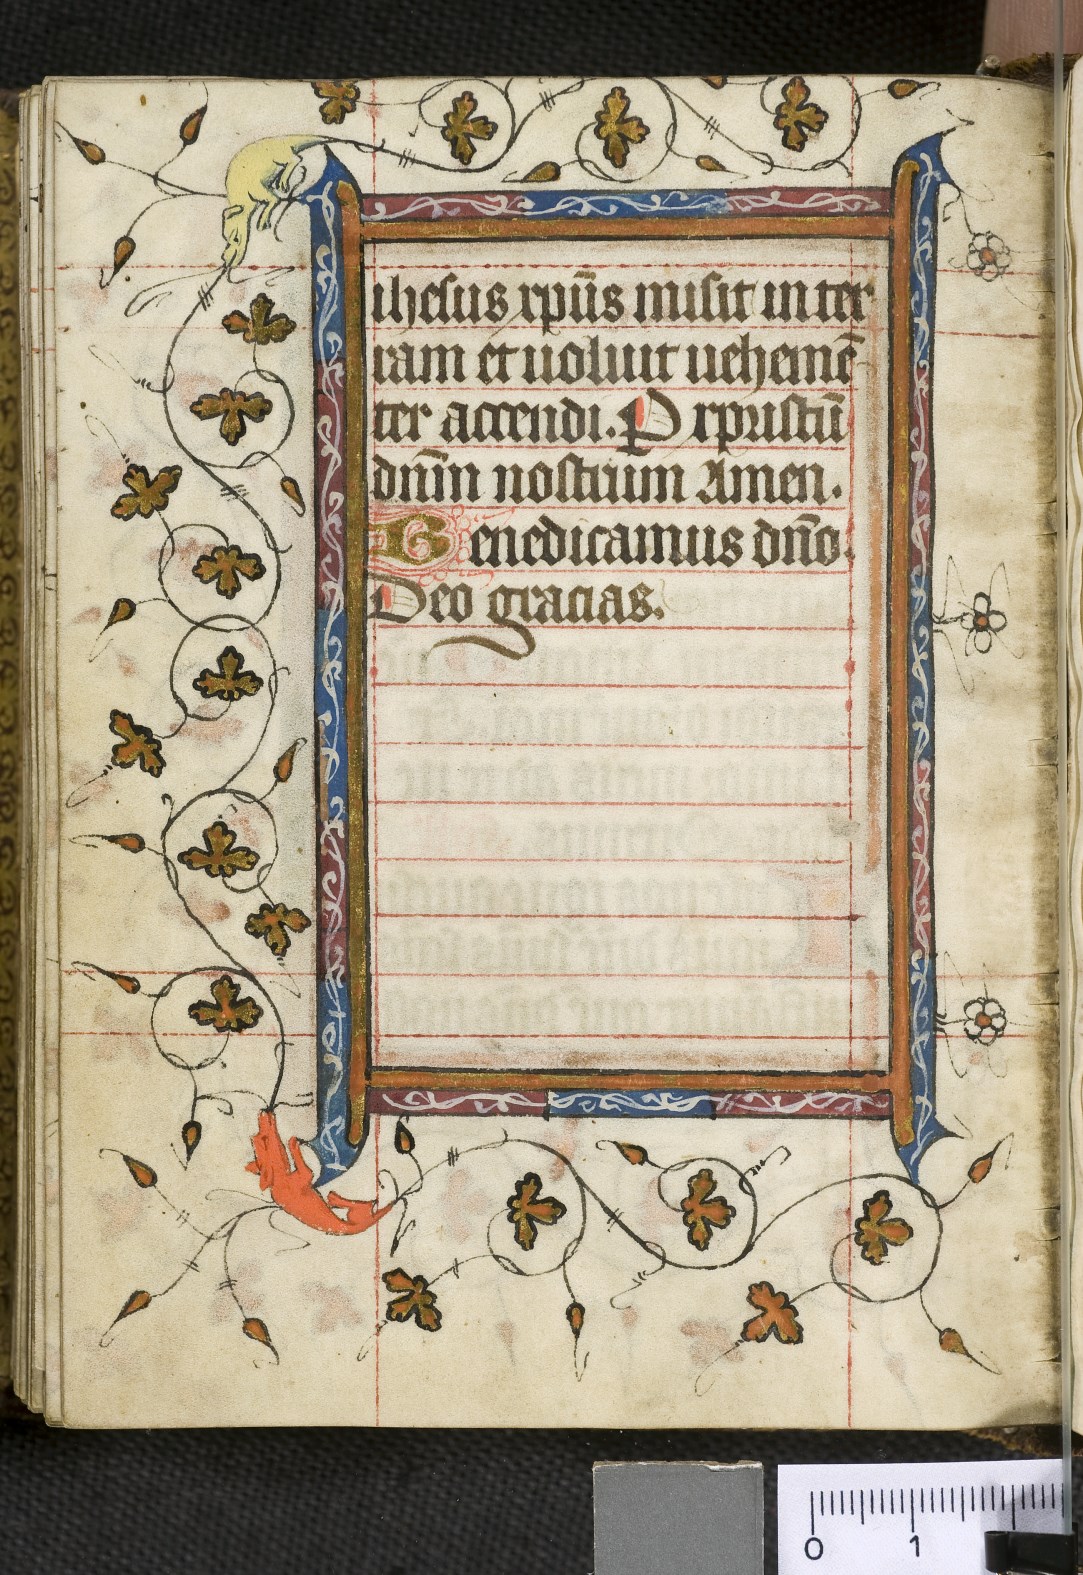 ihesus xpūs misit in ter
ram et uoluit uehemē
ter accendi. P xpristū
dn̄m nostrum Amen.
Benedicamus dn̄o.
Deo gracias.
0 1